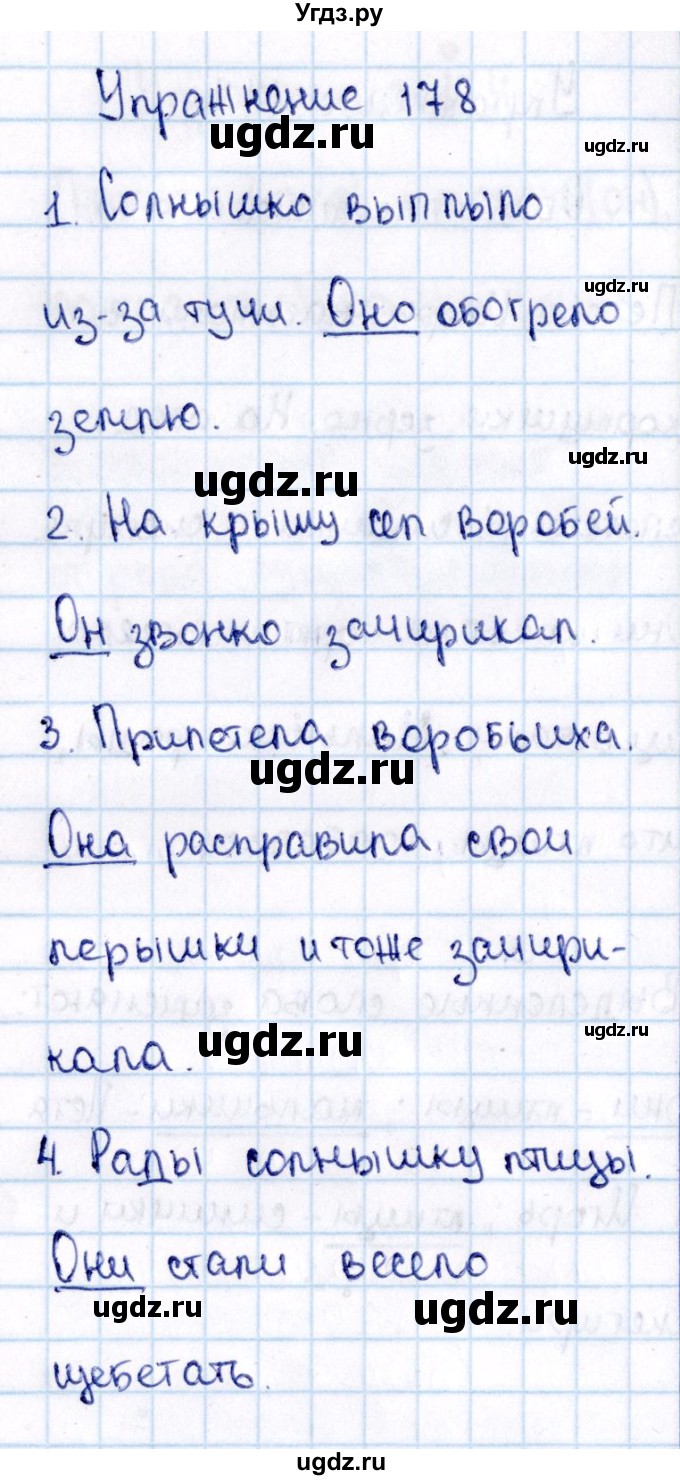 Угдз.ру
Упражнение 178
ugdz.ru
ugdz.ru
1. Солнышко выплыло
ugdz.ru
из-за тучи. Оно обогрело
землю.
ugdz.ru
ugdz.ru
2. На крышу сел воробей.
Он звонко зачирикал.
ugdz.ru
3. Прилетела воробьиха.
ugdz.ru
Она расправила свои
ugdz.ru
перышки и тоже зачири-
ugdz.ru
ugdz.ru
кала.
4. Рады солнышку птицы.
Они стали весело
ugdz.ru
ugdz.ru
щебетать.
ugdz.ru